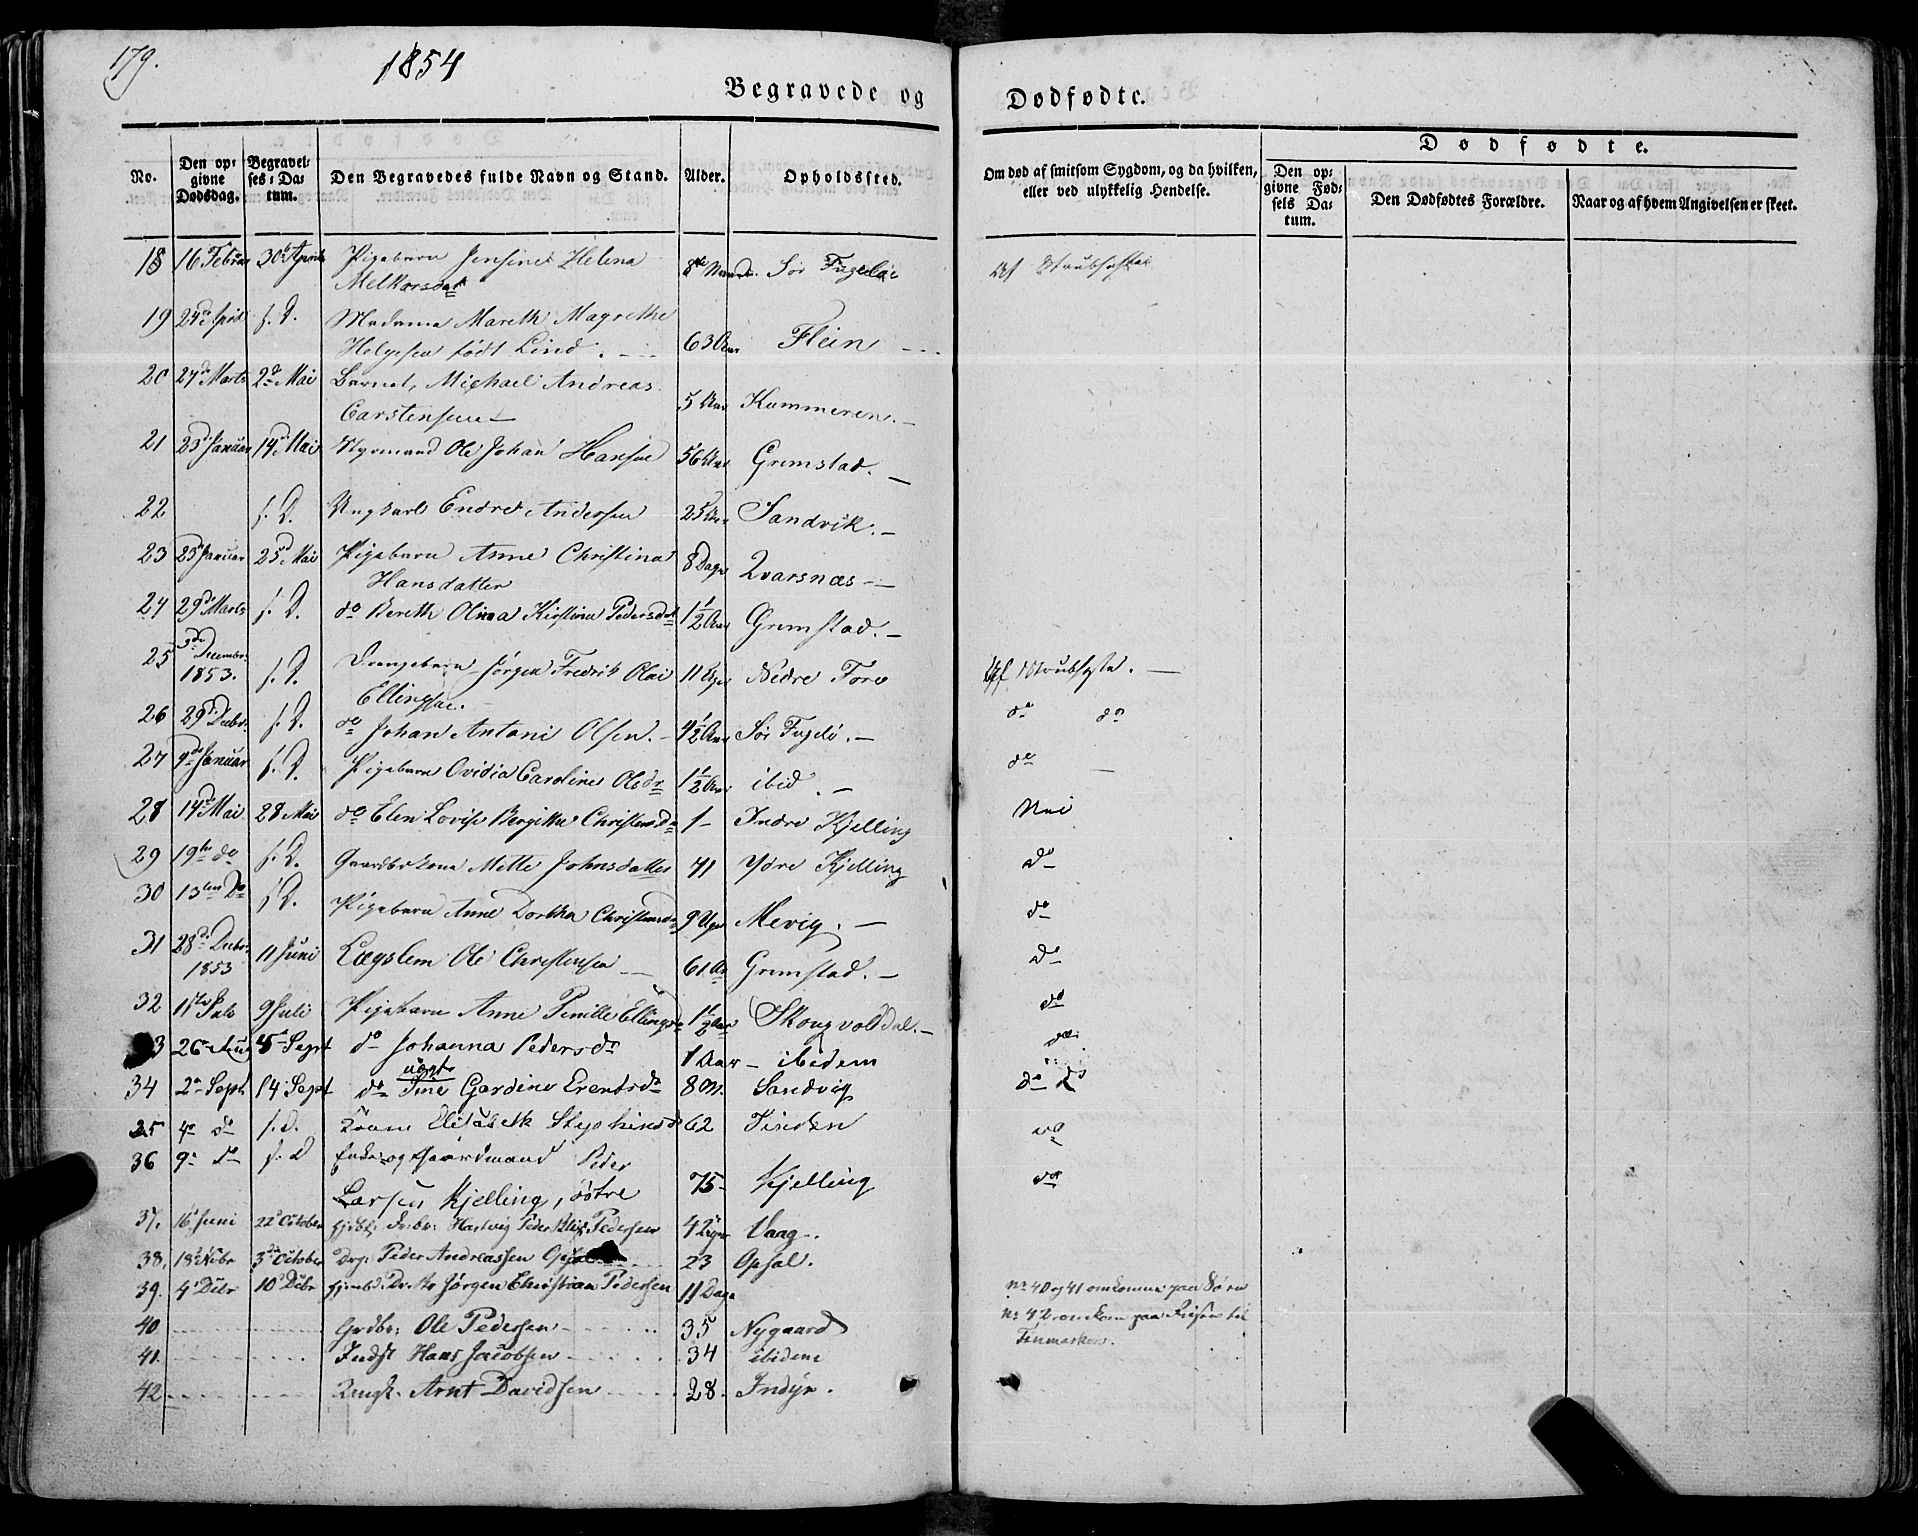 179.
1854
Begravede og
Dødfødte.
No.
Den op-
givne
Dødsdag.
Begravel-
ses-Da-
tum.
Den Begravedes fulde Navn og Stand.
Alder.
Opholdssted.
Om død af smitsom Sygdom, og da hvilken,
eller ved ulykkelig Hendelse.
Dødfødte.
Den op-
givne Fød-
sels Da-
tum.
Den Dødfødtes Forældre.
Naar og af hvem Angivelsen er skeet.
18 16 Februar 30 April Pigebarn Jensine Helena
Melkorsdat Sør Fugeløe Af Strubesyge
19 24 April s. D. Madame Mareth Magrethe
Helgesen født Lind. 63 Aar Flein
20 27 Marts 2d Mai Barnet Michael Andreas
Carstensen 5 Aar Kammeren.
21 23 Januar 14d Mai Styrmand Ole Johan Hansen 56 Aar Grimstad.
22 s. D. Ungkarl Endre Andersen 25 Aar Sandvik.
23 25 Januar 25d Mai Pigebarn Anne Christina
Hansdatter 8 Dage Qvarsnæs
24 29d Marts s. D. do Bereth Olina Kirstina Pedersdat 1 1/2 Aar Grimstad.
25 3de December
1853. s. D. Drengebarn Jørgen Fredrik Olai
Ellingsen. 11 Uger Nedre Fore Af Strubesyge.
26 29d Decbr. s. D. do Johan Antoni Olsen. 4 1/2 Aar Sør Fugelø. do do
27 9de Januar s. D. Pigebarn Ovidia Caroline Olsdr 1 1/2 Aar ibid. do
28 14d Mai 28 Mai do Elen Lovise Bergitha Christensd 1 Indre Kjelling Nei
29 19de do s. D. Gaardbr.kone Mette Johnsdatter 71 Ydre Kjelling do
30 13ten Do s. D. Pigebarn Anne Dorthea Christensd 9 Uger Mevig. do
31 28d Decbr.
1853 11 Juni Lægslem Ole Christensen 61 Aar Grimstad. do
32 11te Juli 9 Juli Pigebarn Anne Pernille Ellingsd 1 1/2 Aar Skougvolddal. do
33 26 Aug 4 Sept do Johanna Pedersdr 1 Aar ibidem do
34 2 Sept 14 Sept do uægte Tine Gardine Erentsdr 8 M. Sandvig do do
35 4 do s. D. Kone Elisabeth 62 Tinden do
36 9 do s. D Enke og Gaardmand Peder
Larsen Kjelling, østre 75 Kjelling do
37. 16 Juni 22 October Hartvig Peder Pedersen 4 Uger Vaag.
38. 18 Nbr 3de October Drg: Peder Andreassen Opsal 23 Opsal.
39. 4 Dcbr 10 Dcbr Jørgen Christian Pedersen 11 Dage
40 Grdbr: Ole Pedersen 35 Nygaard
41. Indst Hans Jacobsen 34 ibidem
42 Ungk. Arnt Davidsen 28. Indyr.
No 40 og 41 omkomne paa Søen
No 42 omkom paa Reisen til
Finmarken.